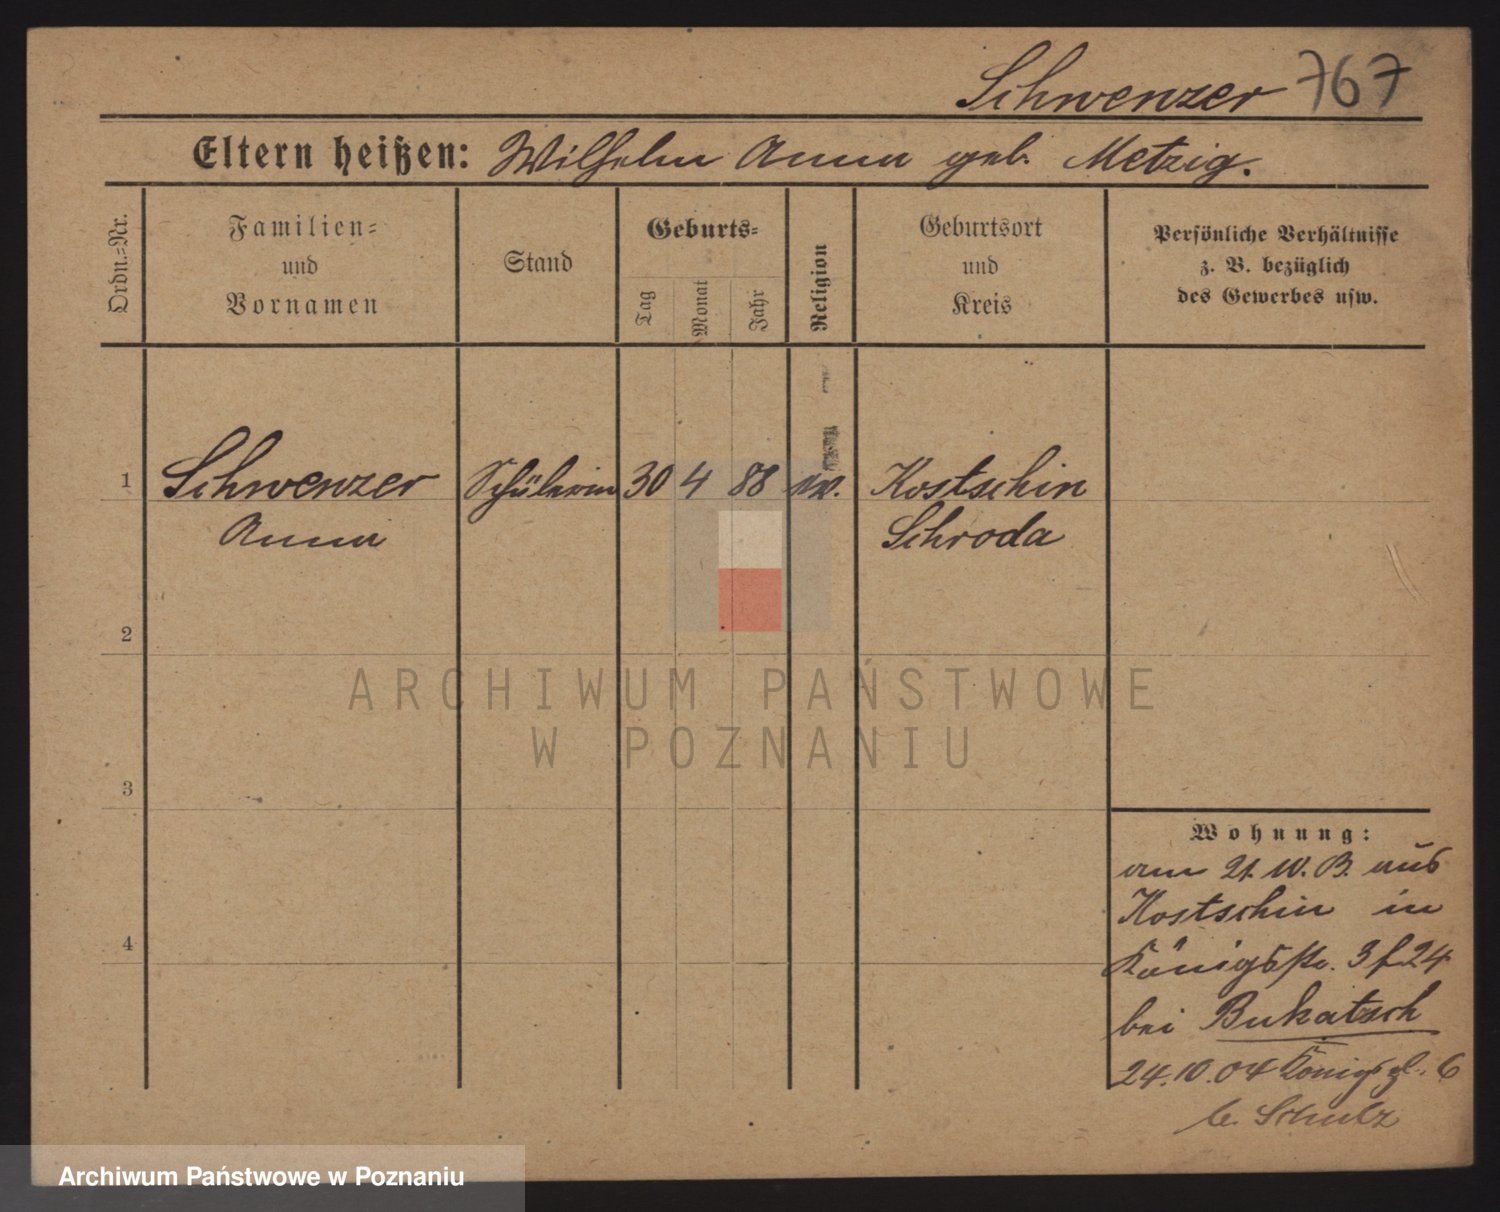 Schwenzer 767
Eltern heißen: Wilhelm Anna geb. Metzig.
Ordn.=Nr.
Familien=
und
Vornamen
Stand
Geburts=
Tag
Monat
Jahr
Religion
Geburtsort
und
Kreis
Persönliche Verhältnisse
z. B. bezüglich
des Gewerbes usw.
1 Schwenzer Schülerin 30 4 88 ev. Kostschin
Anna Schroda
2
ARCHIWUM PAŃSTWOWE
W POZNANIU
3
4
Wohnung:
am 21. 10. 03. aus
Kostschin in
Königsstr. 3 24
bei Bukatsch
24.10.04 Königspl. 6
b. Schulz
Archiwum Państwowe w Poznaniu